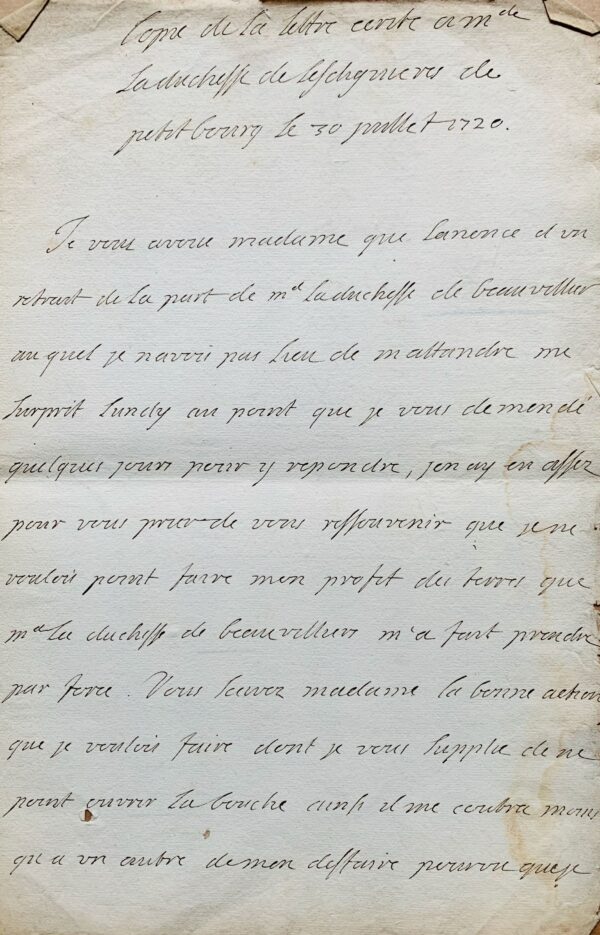 Copie de la lettre ecrite a m de
La duchesse de Lesdiguieres de
petit bourg le 30 juillet 1720.
Je vous avoue madame que Lanonce d'un
retrait de la part de md La duchesse de beauvillier
au quel je navois pas Lieu de mattandre me
surprit Lundy au point que je vous demendé
quelques jours pour y repondre, jen ay eu assez
pour vous prier de vous ressouvenir que je ne
voulois point faire mon profit des terres que
md La duchesse de beauvilliers m'a fait prendre
par force. Vous savez madame la bonne action
que je voulois faire dont je vous supplie de ne
point ouvrir La bouche ainsi il me coutra moins
qu a un autre de men deffaire pourvou que je